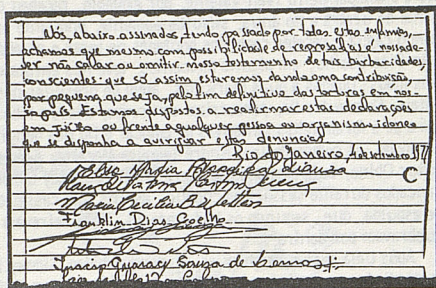 Nós, abaixo assinados, tendo passado por todas estas infâmias,
achamos que mesmo com possibilidade de represálias é nosso de-
ver não calar ou omitir nosso testemunho de tais barbaridades,
conscientes que só assim estaremos dando uma contribuição,
por pequena que seja, pelo fim definitivo das torturas em nos-
so país. Estamos dispostos a reafirmar estas declarações
em juízo ou frente a qualquer pessoa ou organismo idôneo
que se disponha a averiguar estas denúncias
Rio de Janeiro, 4 de setembro, 197
C
Maria
Maria Cecilia B
Franklin Dias Coelho
Souza de Lemos